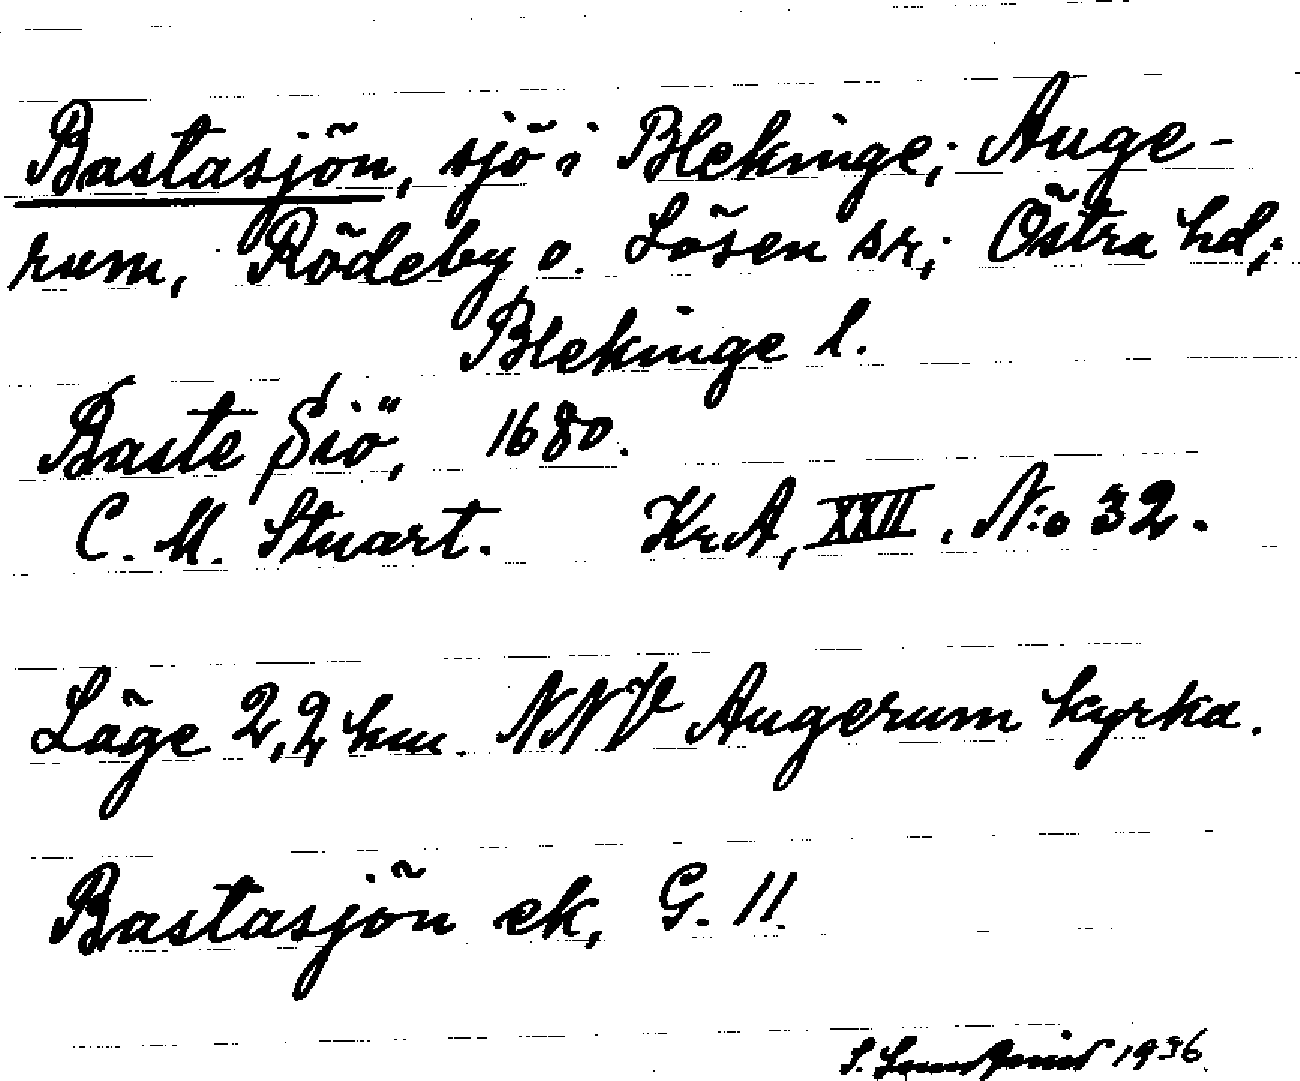 Bastasjön, sjö i Blekinge; Auge-
rum, Rödeby o. Lösen sr; Östra hd;
Blekinge l.
Baste Siö, 1680.
C. M. Stuart. KrA, XXII. N:o 32.
Läge 2,2 km. NNV Augerum kyrka.
Bastasjön ek, G. 11.
S. 1936